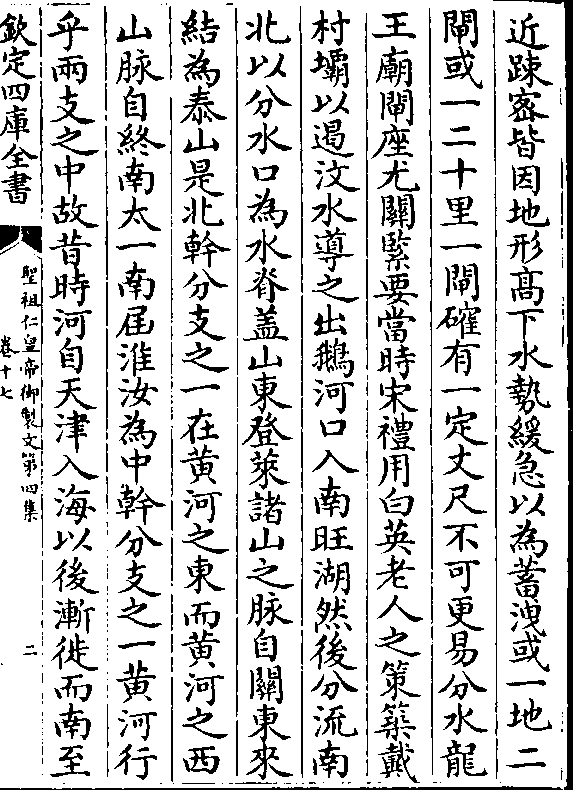 近踈宻皆因地形髙下水勢緩急以為蓄洩或一地二
閘或一二十里一閘確有一定丈尺不可更易分水龍
王廟閘座尤關緊要當時宋禮用白英老人之策築戴
村壩以遏汶水導之出鵝河口入南旺湖然後分流南
北以分水口為水脊盖山東登萊諸山之脉自關東來
結為泰山是北幹分支之一在黄河之東而黄河之西
山脉自終南太一南屆淮汝為中幹分支之一黄河行
乎兩支之中故昔時河自天津入海以後漸徙而南至
欽定四庫全書
聖祖仁皇帝御製文第四集
卷十七
二